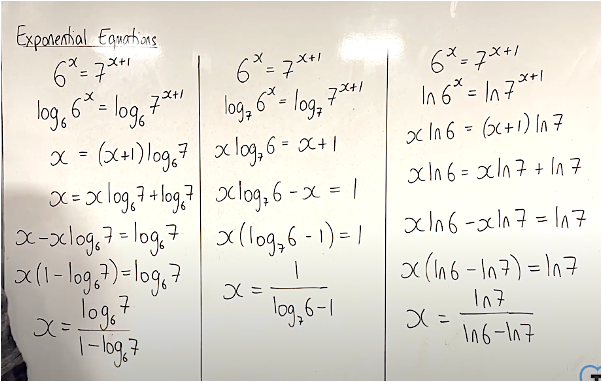 Exponential Equations
6^x = 7^(x+1)
log₆ 6^x = log₆ 7^(x+1)
x = (x+1) log₆ 7
x = x log₆ 7 + log₆ 7
x - x log₆ 7 = log₆ 7
x(1 - log₆ 7) = log₆ 7
x = log₆ 7 / (1 - log₆ 7)
6^x = 7^(x+1)
log₇ 6^x = log₇ 7^(x+1)
x log₇ 6 = x + 1
x log₇ 6 - x = 1
x(log₇ 6 - 1) = 1
x = 1 / (log₇ 6 - 1)
6^x = 7^(x+1)
ln 6^x = ln 7^(x+1)
x ln 6 = (x+1) ln 7
x ln 6 = x ln 7 + ln 7
x ln 6 - x ln 7 = ln 7
x(ln 6 - ln 7) = ln 7
x = ln 7 / (ln 6 - ln 7)